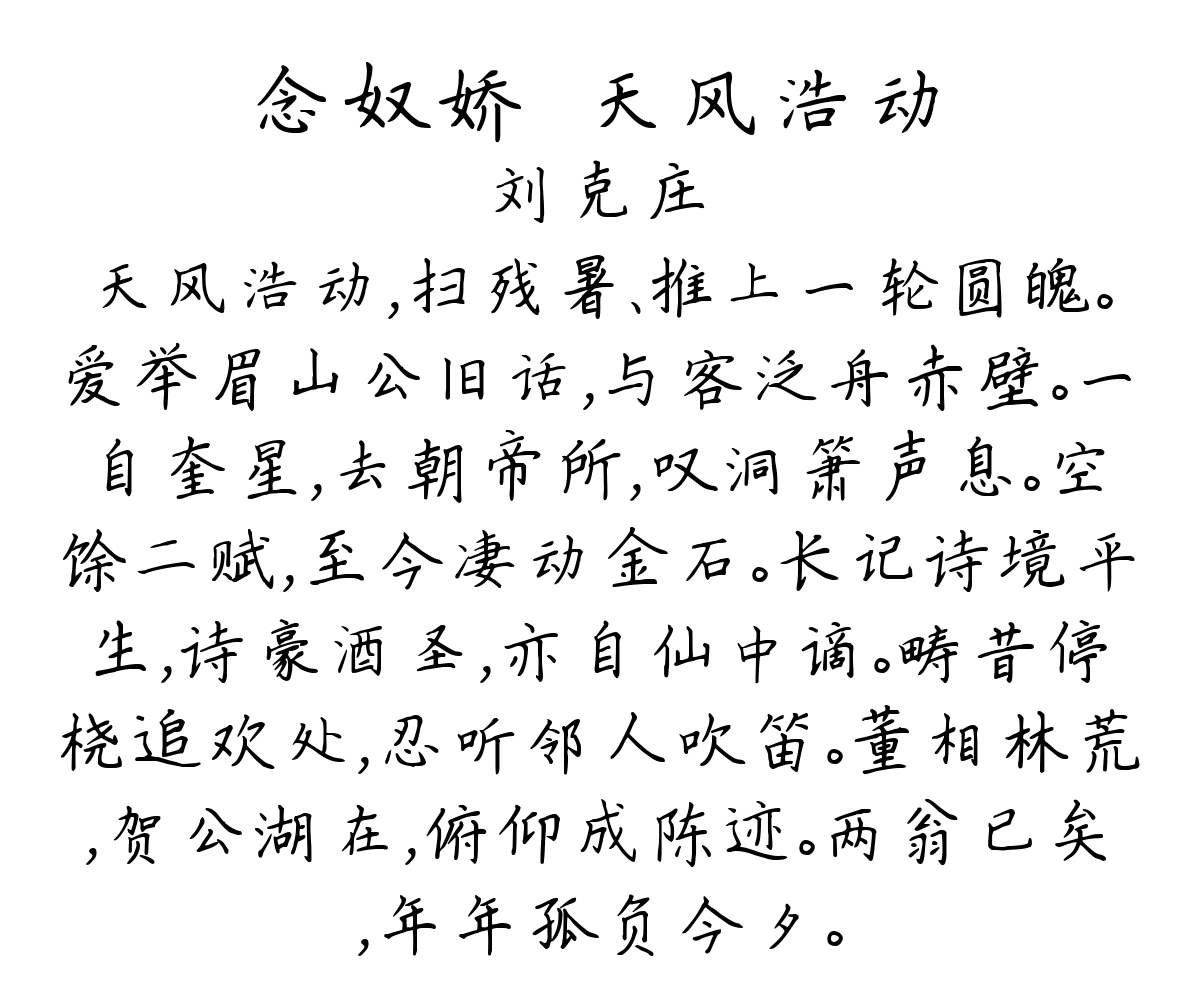 念奴娇 天风浩动
刘克庄
天风浩动,扫残暑、推上一轮圆魄。
爱举眉山公旧话,与客泛舟赤壁。一
自奎星,去朝帝所,叹洞箫声息。空
馀二赋,至今凄动金石。长记诗境平
生,诗豪酒圣,亦自仙中谪。畴昔停
桡追欢处,忍听邻人吹笛。董相林荒
,贺公湖在,俯仰成陈迹。两翁已矣
,年年孤负今夕。